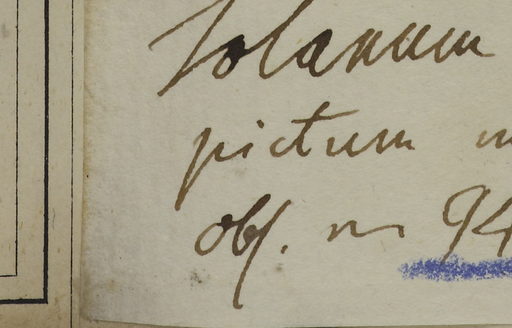 Solanum
pictum
obs. n 94